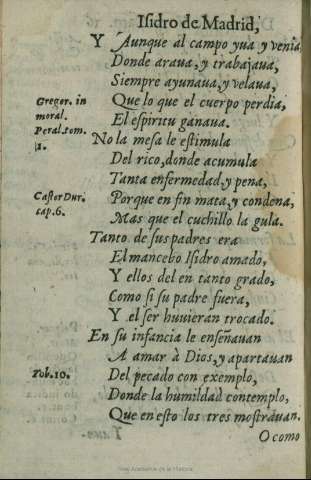 Isidro de Madrid,
Y Aunque al campo yua y venia
Donde araua, y trabajaua,
Siempre ayunaua, y velaua,
Gregor. in
moral.
Peral. tom.
2.
Que lo que el cuerpo perdia,
El espiritu ganaua.
No la mesa le estimula
Del rico, donde acumula
Tanta enfermedad, y pena,
Castor Dur.
cap. 6.
Porque en fin mata, y condena,
Mas que el cuchillo la gula.
Tanto de sus padres era
El mancebo Isidro amado,
Y ellos del en tanto grado,
Como si su padre fuera,
Y el ser huuieran trocado.
En su infancia le enseñauan
A amar à Dios, y apartauan
Tob. 10.
Del pecado con exemplo,
Donde la humildad contemplo,
Que en esto los tres mostrauan.
O como
Real Academia de la Historia